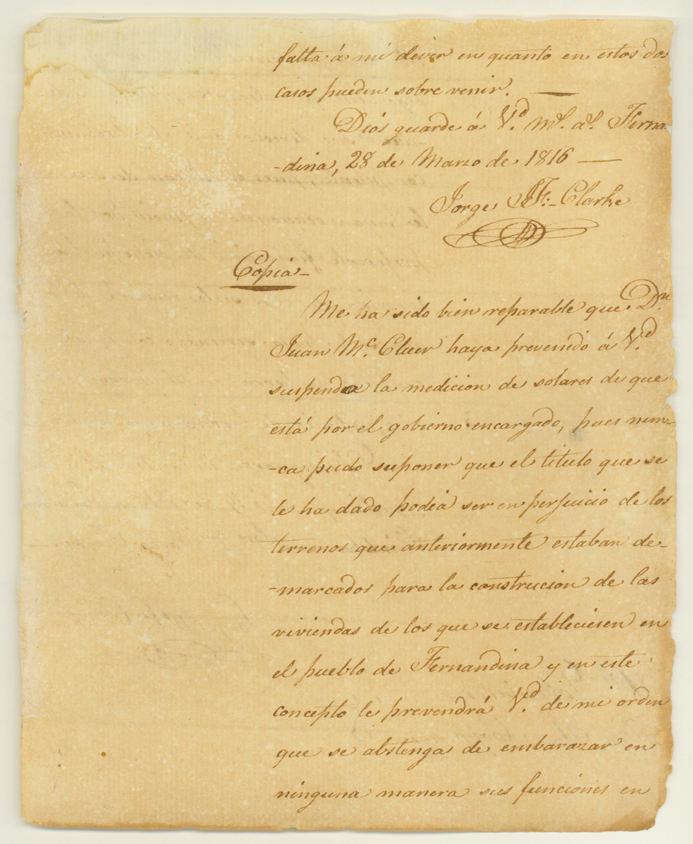 falta á mi dever en quanto en estos dos
casos pueden sobre venir. —
Dios guarde á V.d m.s a.s Ferna
-dina, 28 de Marzo de 1816 —
Jorge J. F. Clarke
Copia —
Me ha sido bien reparable que D.n
Juan M.c Cluer haya prevenido á V.d
suspenda la medicion de solares de que
está por el gobierno encargado, pues nun-
-ca pudo suponer que el titulo que se
le ha dado podia ser en perjuicio de los
terrenos que anteriormente estaban de-
-marcados para la construcion de las
viviendas de los que se estableciesen en
el pueblo de Fernandina y en este
concepto le prevendrá V.d de mi orden
que se abstenga de embarazar en
ninguna manera sus funciones en